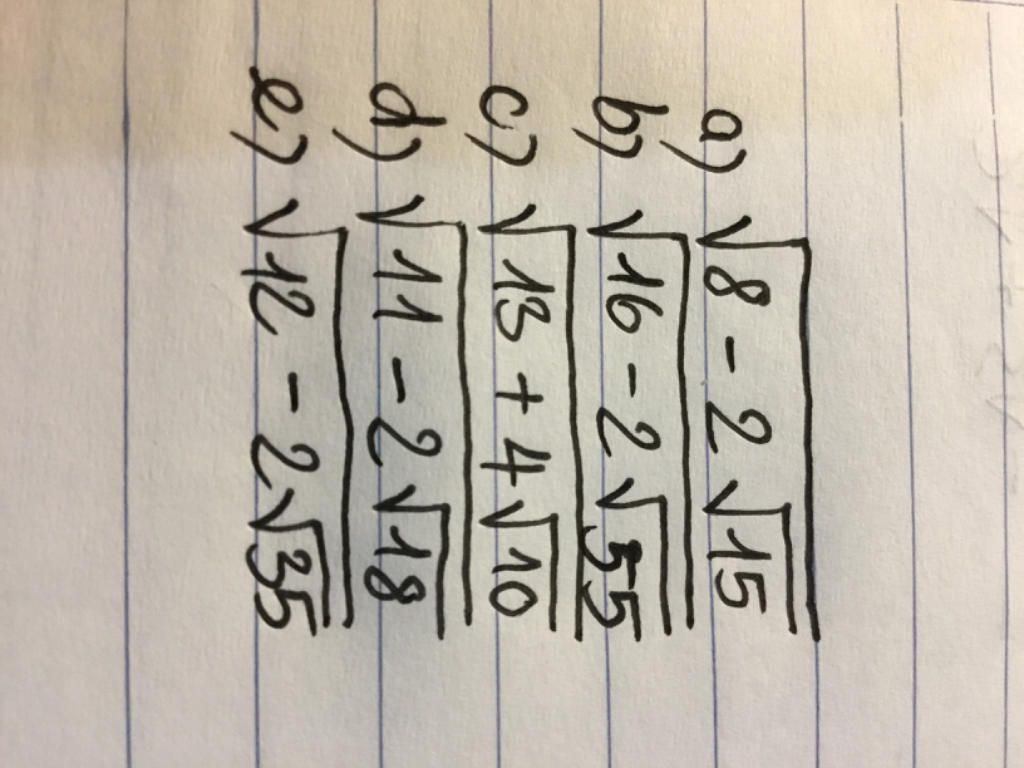 a) √(8 - 2√15)
b) √(16 - 2√55)
c) √(13 + 4√10)
d) √(11 - 2√18)
e) √(12 - 2√35)